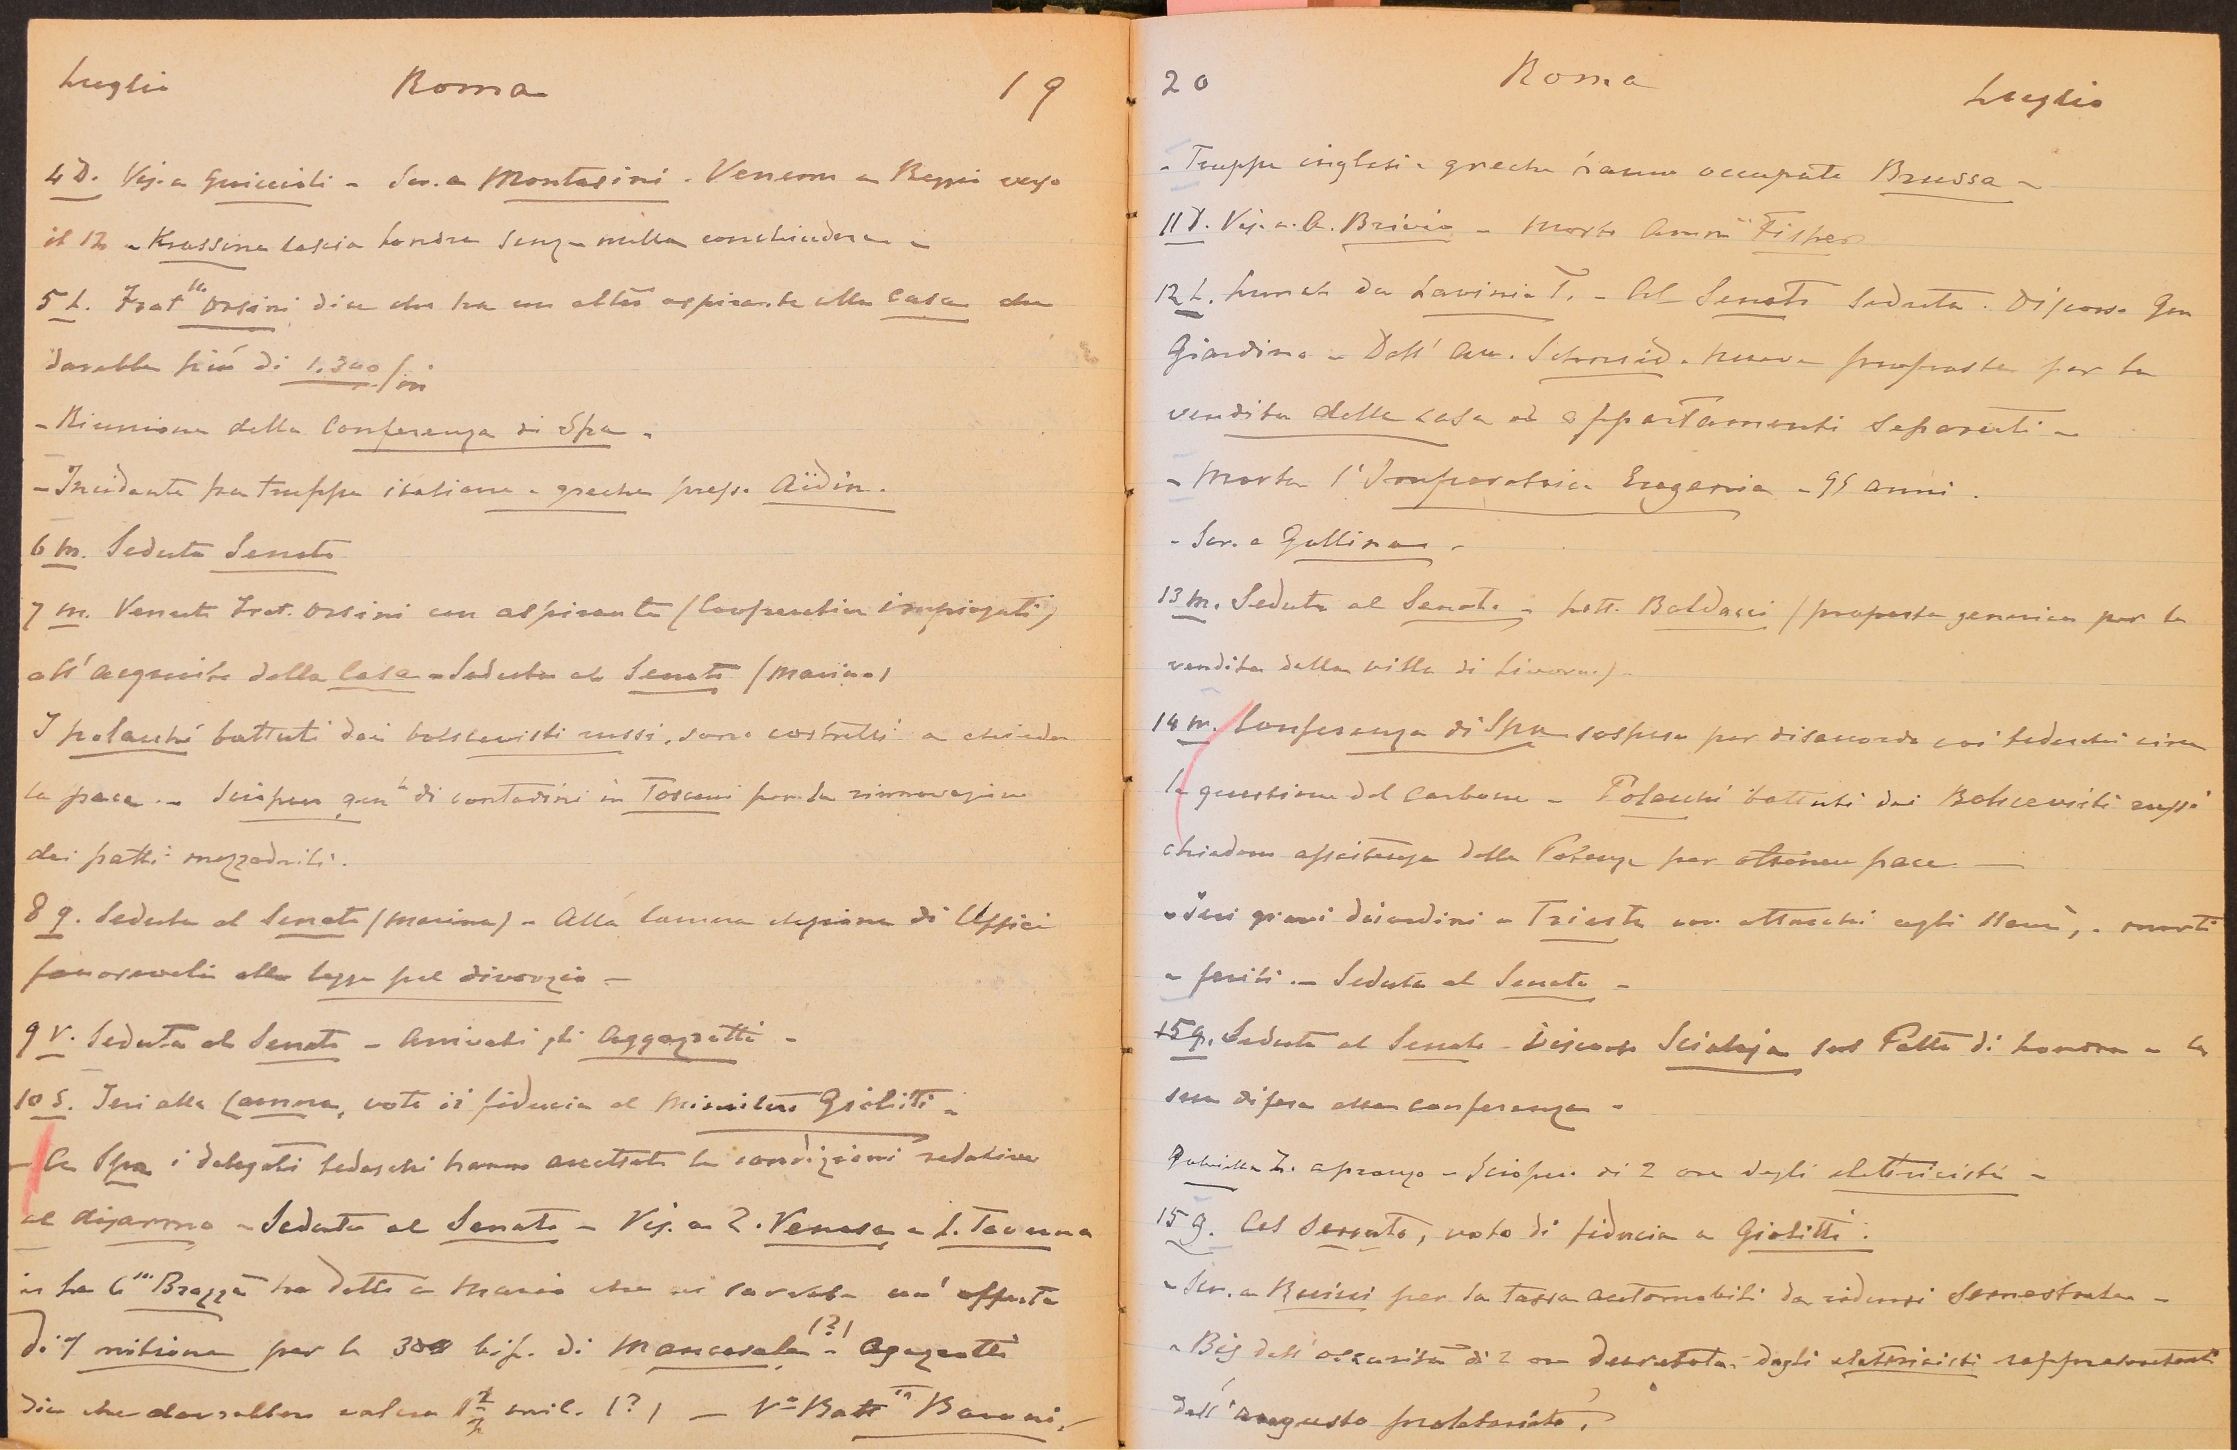 Luglio Roma 19
4 D. Vis. a Guiccioli - Scr. a Montasini. Venerm a Reggio verso
il 12 - Krassine lascia Londra senza nulla conchiudere -
5 L. Frat.lli Orsini dice che ha un altro aspirante alla casa che
darebbe più di 1.300/m
- Riunione della Conferenza di Spa -
- Incidente fra truppe italiane e greche presso Aïdin.
6 m. Seduta Senato
7 m. Venuti Frat. Orsini con aspirante (Cooperativa impiegati)
all'acquisto della Casa - Seduta al Senato (marina)
I polacchi battuti dai bolscevisti russi, sono costretti a chieder
la pace. - Sciopero gen. di contadini in Toscana per la rinnovazione
dei patti mezzadrili.
8 g. Seduta al Senato (marina) - Alla Camera elezione di Uffici
favorevoli alla legge pel divorzio -
9 V. Seduta al Senato - Arrivati gli Aggazzotti -
10 S. Ieri alla Camera, voto di fiducia al Ministero Giolitti -
- A Spa i delegati tedeschi hanno accettato le condizioni relative
al disarmo - Seduta al Senato - Vis. a Z. Venosa e L. Taverna
- La C.ssa Brazzà ha detto a Mario che vi sarebbe un'offerta
di 1 milione per le 300 bif. di Mancasale (?) - Agazzotti
dice che dovrebbero valere 1 1/2 mil. (?) - V.o Batt.n Baroni,
20 Roma Luglio
- Truppe inglesi e greche hanno occupata Brussa -
11 D. Vis. a A. Brivio - Morto Amm. Fisher
12 L. Lunch da Lavinia T. - Al Senato Seduta. Discorso Gen
Giardino - Dall'avv. Schmid. nuova proposta per la
vendita della casa ad appartamenti separati -
- Morta l'Imperatrice Eugenia - 95 anni.
- Scr. a Gallina -
13 m. Seduta al Senato - Lett. Baldacci (proposta generica per la
vendita della villa di Livorno) -
14 m. Conferenza di Spa sospesa per disaccordo coi tedeschi circa
la questione del carbone - Polacchi battuti dai Bolscevisti russi
chiedono assistenza delle Potenze per ottenere pace. -
- Ieri gravi disordini a Trieste con attacchi agli Slavi, e morti
e feriti. - Seduta al Senato -
15 g. Seduta al Senato - Discorso Scialoja sul Patto di Londra e la
sua difesa alla conferenza -
Gabriella Z. a pranzo - Sciopero di 2 ore degli elettricisti -
15 g. Al Senato, voto di fiducia a Giolitti.
- Scr. a Ruini per la tassa automobili da ridursi semestrale -
- Bis dell'oscurità di 2 ore decretata dagli elettricisti rappresentanti
dell'augusto proletariato!